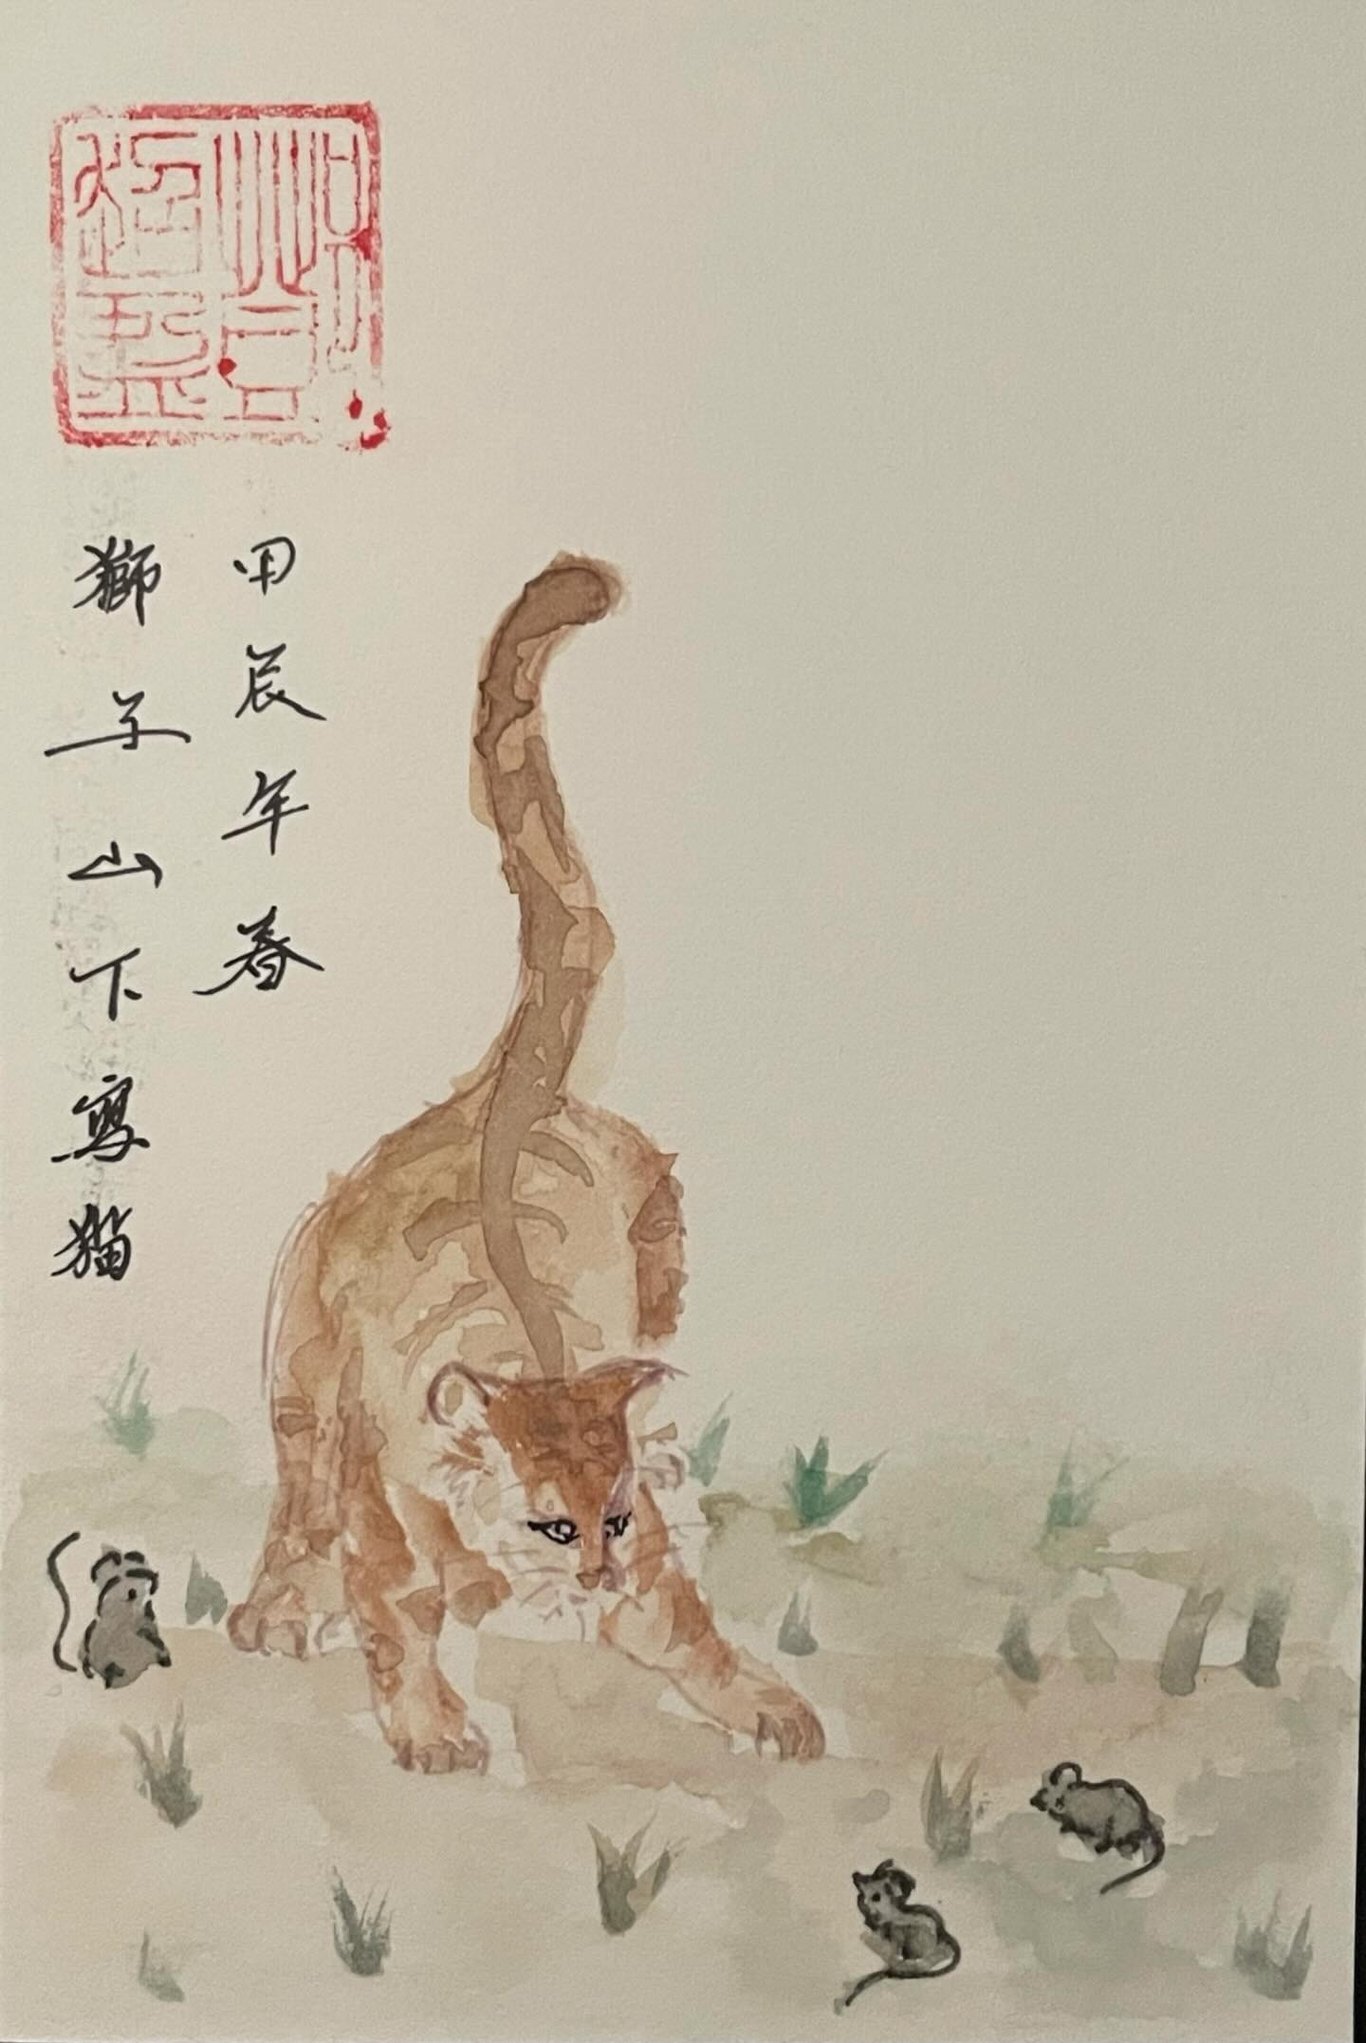 甲辰年春
獅子山下寫猫